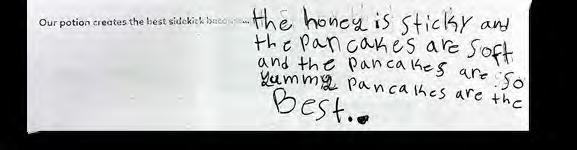 Our potion creates the best sidekick because... the honey is sticky and
the pancakes are soft
and the pancakes are so
yummy pancakes are the
Best.